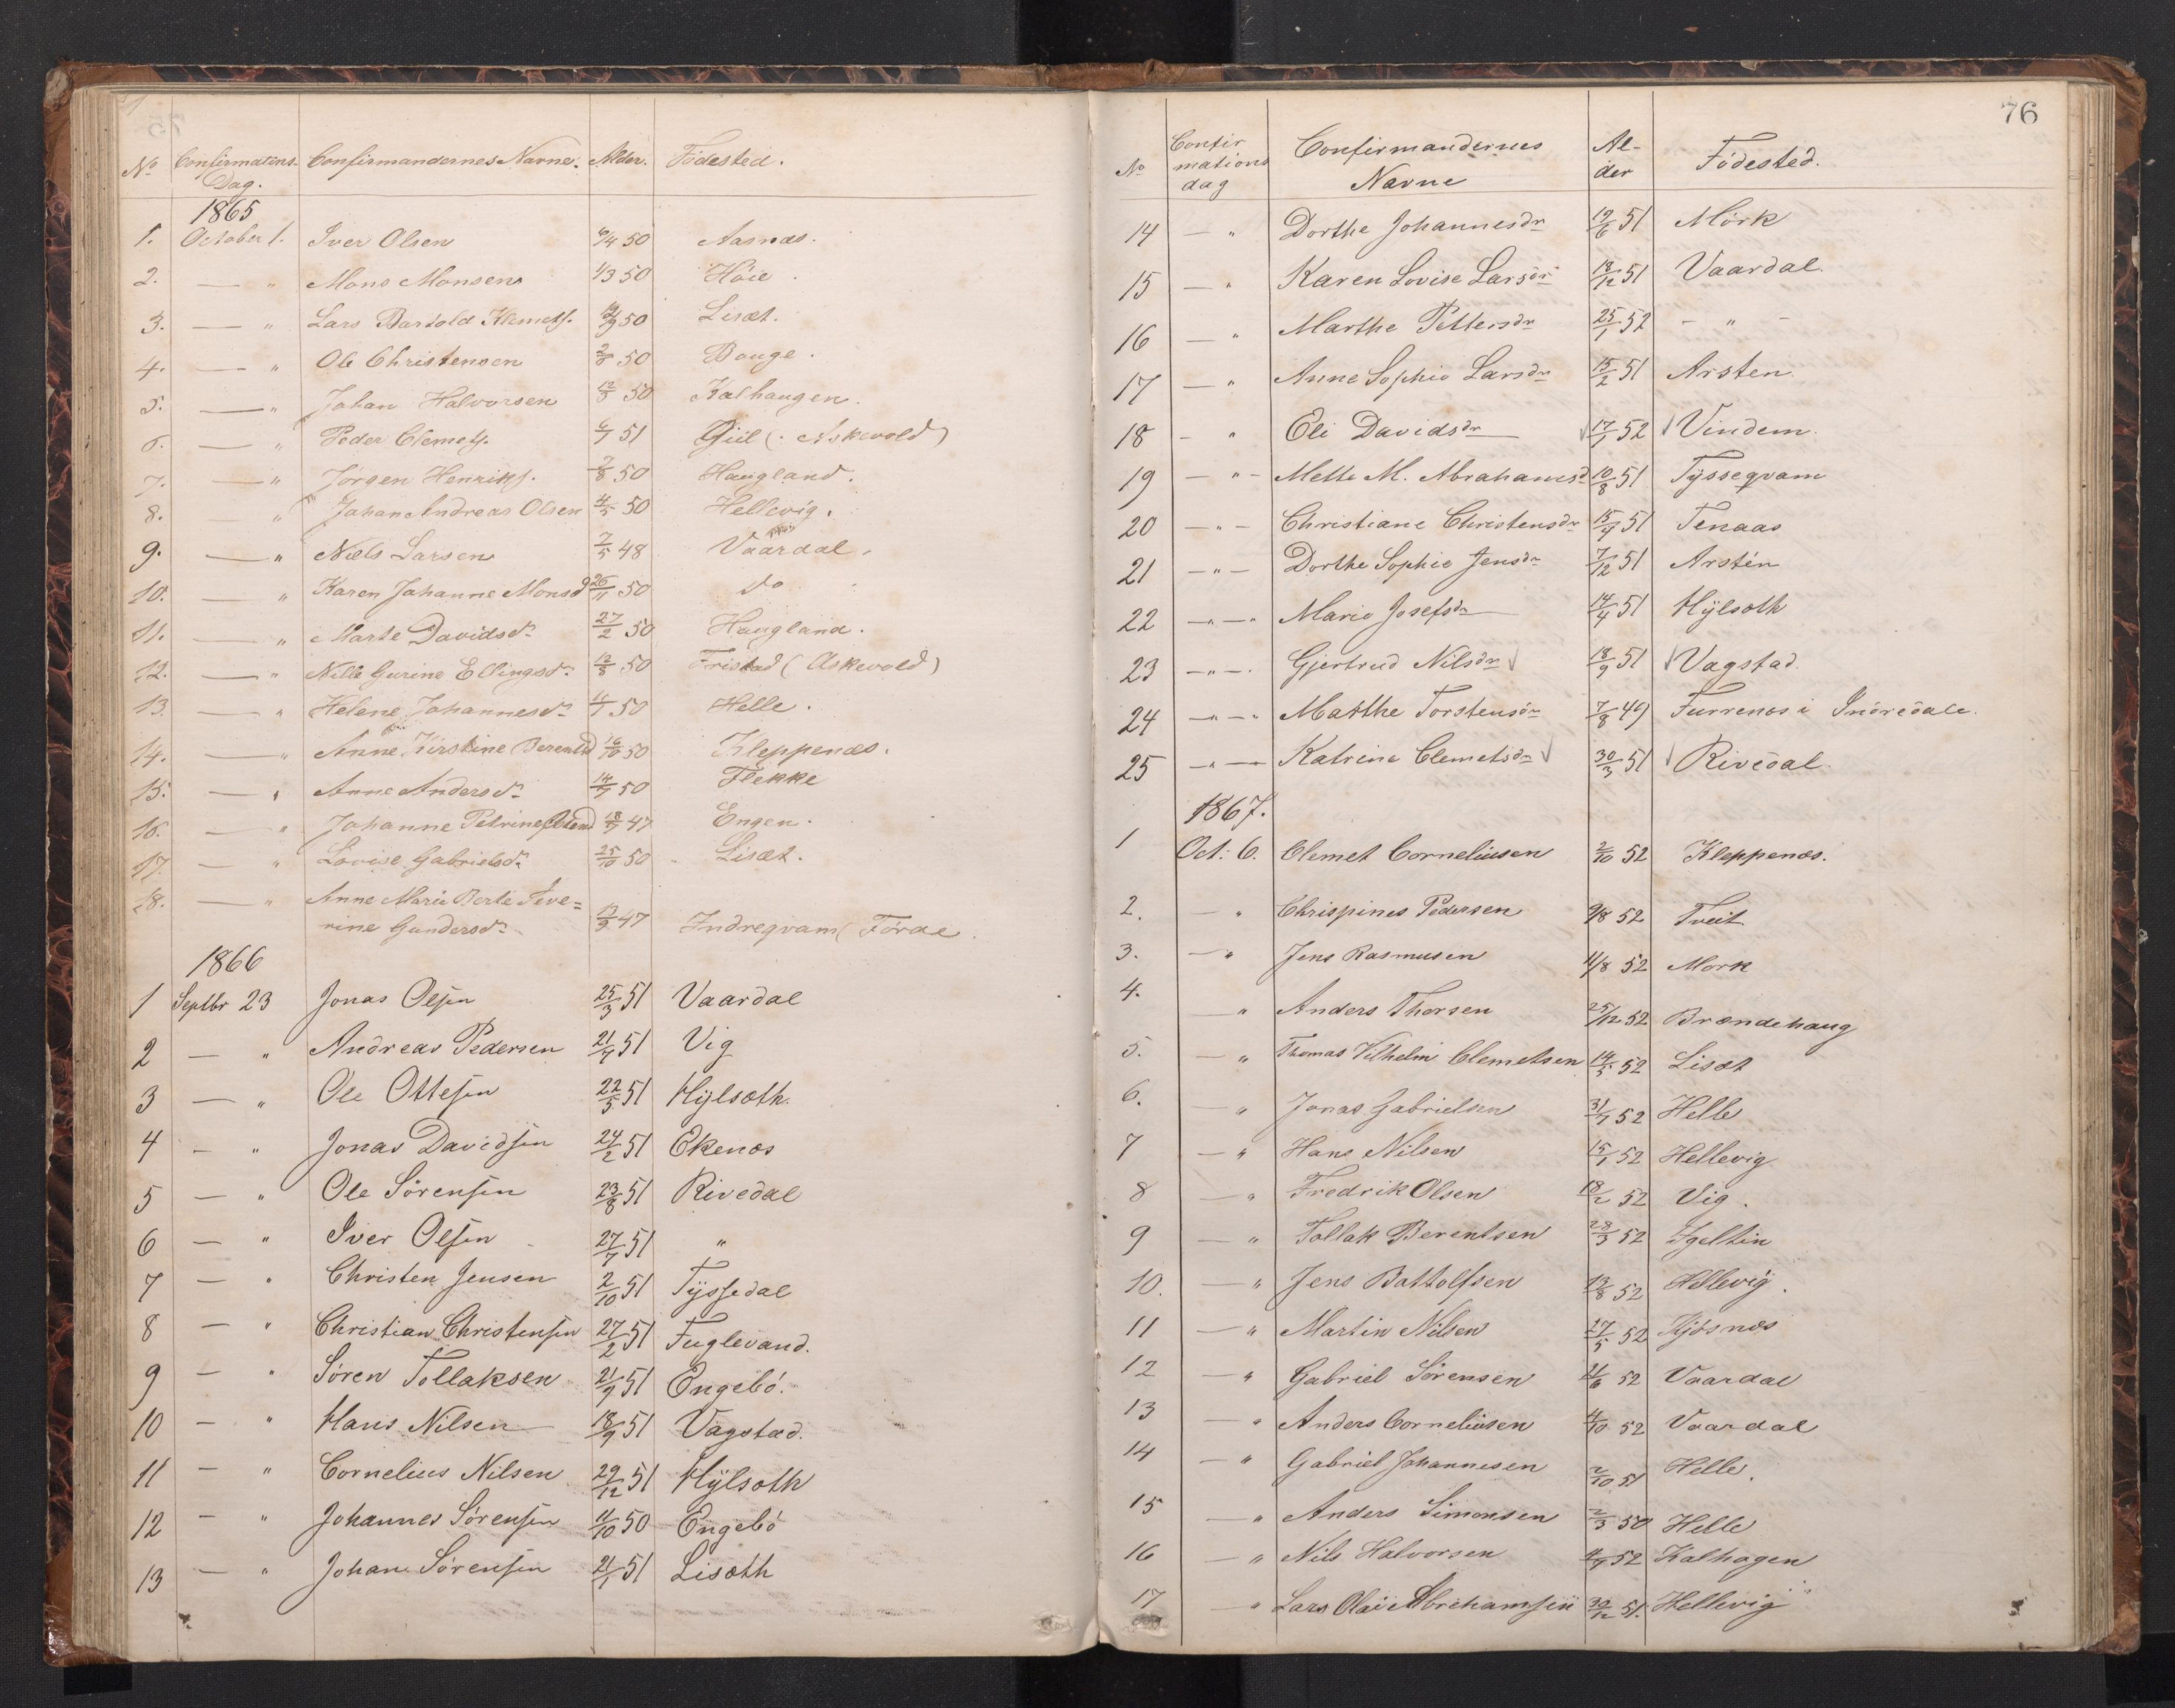 No Confirmatins- Dag. Confirmandernes Navne. Alder. Födested.
1865
1. October 1. Iver Olsen 6/4 50 Aasnæs.
2. — " Mons Monsen 1/3 50 Höie.
3. — " Lars Bartold Klemets. /9 50 Lisæt.
4. — " Ole Christensen 2/8 50 Bauge.
5. — " Johan Halvorsen 12/8 50 Kalhaugen.
6. — " Peder Clemets. 6/1 51 Gjiil (Askevold)
7. — " Jörgen Henriks. 7/8 50 Haugland.
8. — " Johan Andreas Olsen 4/5 50 Hellevig.
9. — " Niels Larsen 7/5 48 Vaardal.
10. — " Karen Johanne Monsd 26/11 50 do
11. — " Marte Davidsdr 27/2 50 Haugland.
12. — " Nille Gurine Ellingsdr 12/8 50 Fristad (Askevold)
13. — " Helene Johannesdr 4/1 50 Helle.
14. — " Anne Kirstine Berentsd 16/10 50 Kleppenæs.
15. — " Anne Andersdr 14/7 50 Flekke
16. — " Johanne Petrine 18/7 47 Engen.
17. — " Lovise Gabrielsdr 25/10 50 Lisæt.
18. — " Anne Marie Berte Seve=
rine Gundersdr 13/9 47 Indreqvam (Förde.
1866
1 Septbr 23 Jonas Olsen 25/3 51 Vaardal
2 — " Andreas Pedersen 21/7 51 Vig
3 — " Ole Ottesen 22/5 51 Hÿlsæth.
4 — " Jonas Davidsen 24/2 51 Ekenæs
5 — " Ole Sörensen 23/8 51 Rivedal
6 — " Iver Olsen 27/7 51 "
7 — " Christen Jensen 2/10 51 Tÿssedal
8 — " Christian Christensen 27/2 51 Fuglevand.
9 — " Sören Tollaksen 21/9 51 Engebö.
10 — " Hans Nilsen 18/9 51 Vagstad.
11 — " Cornelius Nilsen 29/12 51 Hÿlsæth
12 — " Johannes Sörensen 11/10 50 Engebö
13 — " Johan Sörensen 21/1 51 Lisæth
76
No Confirmations dag Confirmandernes Navne Alder Födested.
14 — " Dorthe Johannesdr 19/6 51 Mörk
15 — " Karen Lovise Larsdr 18/12 51 Vaardal.
16 — " Marthe Pettersdr 25/1 52 - " -
17 — " Anne Sophie Larsdr 15/2 51 Arsten.
18 - " Eli Davidsdr 17/1 52 Vindem.
19 — " - Mette M. Abrahamsd 10/8 51 Tÿsseqvam
20 — " - Christiane Christensdr 15/9 51 Tenaas
21 — " — Dorthe Sophie Jensdr 7/12 51 Arstén
22 — " — Marie Josefsdr 14/4 51 Hÿlsæth
23 — " — Gjertrud Nilsdr 18/9 51 Vagstad.
24 — " — Marthe Torstensdr 7/8 49 Furrenæs i Indredale.
25 — " — Katrine Clemetsdr 30/3 51 Rivedal.
1867.
1 Oct: 6. Clemet Corneliusen 2/10 52 Kleppenæs.
2. — " Chrispines Pedersen 9/8 52 Tveit
3. — " Jens Rasmusen 11/8 52 Mork
4. — " Anders Thorsen 25/12 52 Brændehaug
5. — " Thomas Vilhelm Clemetsen 14/5 52 Lisæt
6. — " Jonas Gabrielsen 31/7 52 Helle
7 — " Hans Nilsen 15/1 52 Hellevig
8 — " Fredrik Olsen 18/2 52 Vig.
9 — " Tollak Berentsen 28/3 52 Igeltin
10. — " Jens Battolfsen 13/8 52 Hellevig.
11 — " Martin Nilsen 27/5 52
12 — " Gabriel Sörensen 21/6 52 Vaardal
13 — " Anders Corneliusen 4/10 52 Vaardal
14 — " Gabriel Johannesen 2/10 51 Helle.
15 — " Anders Simonsen 2/3 50 Helle
16 — " Nils Halvorsen 52 Kalhagen
17 — " Lars Olai Abrahamsen 30/12 51. Hellevig